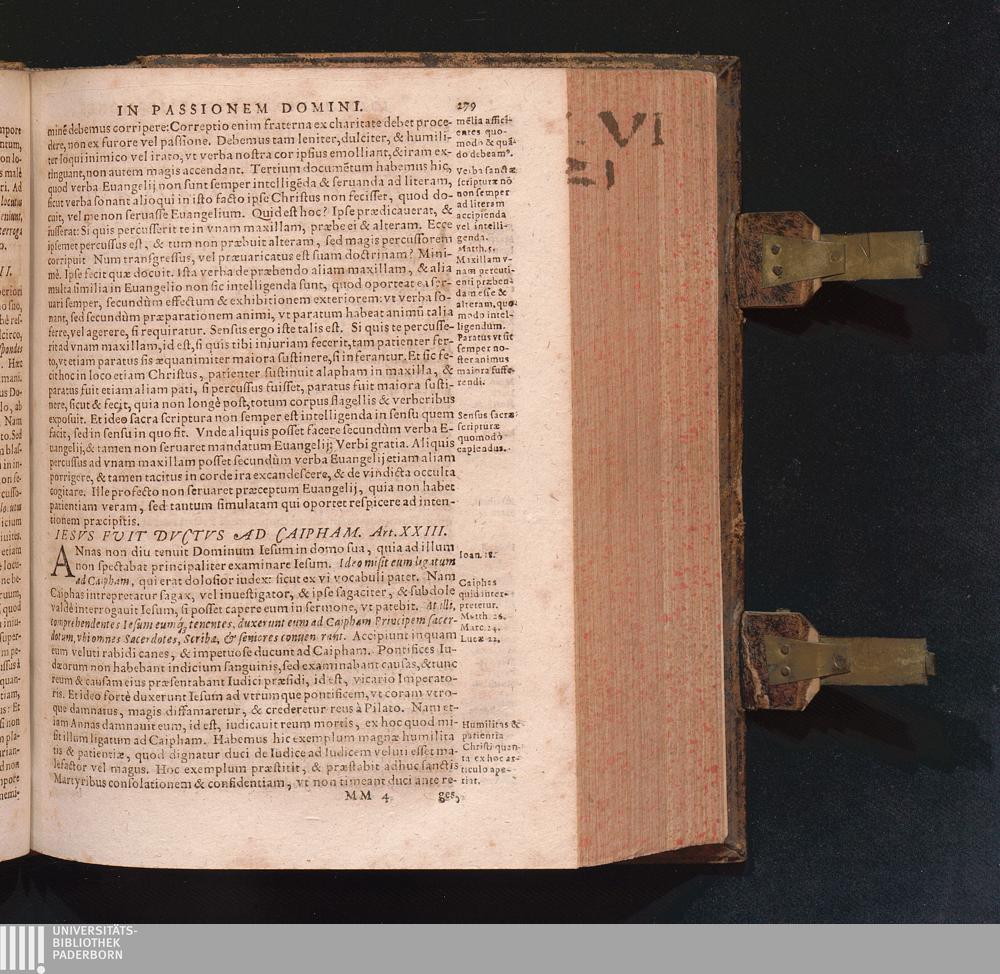 IN PASSIONEM DOMINI. 279
minē debemus corripere: Correptio enim fraterna ex charitate debet proce-
dere, non ex furore vel passione. Debemus tam leniter, dulciter, & humili-
ter loqui inimico vel irato, vt verba nostra cor ipsius emolliant, & iram ex-
tinguant, non autem magis accendant. Tertium documētum habemus hic,
quod verba Euangelij non sunt semper intelligēda & seruanda ad literam,
sicut verba sonant alioqui in isto facto ipse Christus non fecisset, quod do-
cuit, vel me non seruasse Euangelium. Quid est hoc? Ipse prædicauerat, &
iusserat: Si quis percusserit te in vnam maxillam, præbe ei & alteram. Ecce
ipsemet percussus est, & tum non præbuit alteram, sed magis percussorem
corripuit Num transgressus, vel præuaricatus est suam doctrinam? Mini-
mè. Ipse fecit quæ docuit. Ista verba de præbendo aliam maxillam, & alia
multa similia in Euangelio non sic intelligenda sunt, quod oporteat ea ser-
uari semper, secundùm effectum & exhibitionem exteriorem: vt verba so-
nant, sed secundùm præparationem animi, vt paratum habeat animū talia
ferre, vel agere, si requiratur. Sensus ergo iste talis est. Si quis te percusse-
rit ad vnam maxillam, id est, si quis tibi iniuriam fecerit, tam patienter fer-
to, vt etiam paratus sis æquanimiter maiora sustinere, si inferantur. Et sic fe-
cit hoc in loco etiam Christus, patienter sustinuit alapham in maxilla, &
paratus fuit etiam aliam pati, si percussus fuisset, paratus fuit maiora susti-
nere, sicut & fecit, quia non longè post, totum corpus flagellis & verberibus
exposuit. Et ideo sacra scriptura non semper est intelligenda in sensu quem
facit, sed in sensu in quo fit. Vnde aliquis posset facere secundùm verba E-
uangelij, & tamen non seruaret mandatum Euangelij: Verbi gratia. Aliquis
percussus ad vnam maxillam posset secundùm verba Euangelij etiam aliam
porrigere, & tamen tacitus in corde ira excandescere, & de vindicta occulta
cogitare. Ille profecto non seruaret præceptum Euangelij, quia non habet
patientiam veram, sed tantum simulatam qui oportet respicere ad inten-
tionem præcipitis.
IESVS FVIT DVCTVS AD CAIPHAM. Art. XXIII.
ANnas non diu tenuit Dominum Iesum in domo sua, quia ad illum
non spectabat principaliter examinare Iesum. Ideo misit eum ligatum
ad Caipham, qui erat dolosior iudex: sicut ex vi vocabuli patet. Nam
Caiphas intrepretatur sagax, vel inuestigator, & ipse sagaciter, & subdole
valdè interrogauit Iesum, si posset capere eum in sermone, vt patebit. At illi,
comprehendentes Iesum eumq́ tenentes, duxerunt eum ad Caipham Principem sacer-
dotum, vbi omnes Sacerdotes, Scribæ, & seniores conuenerant. Accipiunt inquam
eum veluti rabidi canes, & impetuose ducunt ad Caipham. Pontifices Iu-
dæorum non habebant indicium sanguinis, sed examinabant causas, & tunc
reum & causam eius præsentabant Iudici præsidi, id est, vicario Imperato-
ris. Et ideo fortè duxerunt Iesum ad vtrumque pontificem, vt coram vtro-
que damnatus, magis diffamaretur, & crederetur reus à Pilato. Nam et-
iam Annas damnauit eum, id est, iudicauit reum mortis, ex hoc quod mi-
sit illum ligatum ad Caipham. Habemus hic exemplum magnæ humilita
tis & patientiæ, quod dignatur duci de Iudice ad Iudicem veluti esset ma-
lefactor vel magus. Hoc exemplum præstitit, & præstabit adhuc sanctis
Martyribus consolationem & confidentiam, vt non timeant duci ante re-
MM 4 ges,
mēlia affici-
entes quo-
modo & quā-
do debeamᵒ.
Verba sanctæ
scripturæ nō
non semper
ad literam
accipienda
vel intelli-
genda.
Matth. 5.
Maxillam v-
nam percuti-
enti præben-
dam esse &
alteram, quo
modo intel-
ligendum.
Paratus vt sit
semper no-
ster animus
maiora suffe-
rendi.
Sensus sacræ
scripturæ
quomodò
capiendus.
Ioan. 18.
Caiphas
quid inter-
pretetur.
Matth. 26.
Marc. 14.
Lucæ 22.
Humilitas &
patientia
Christi quan-
ta ex hoc ar-
ticulo ape-
riat.
VI
UNIVERSITÄTS-
BIBLIOTHEK
PADERBORN